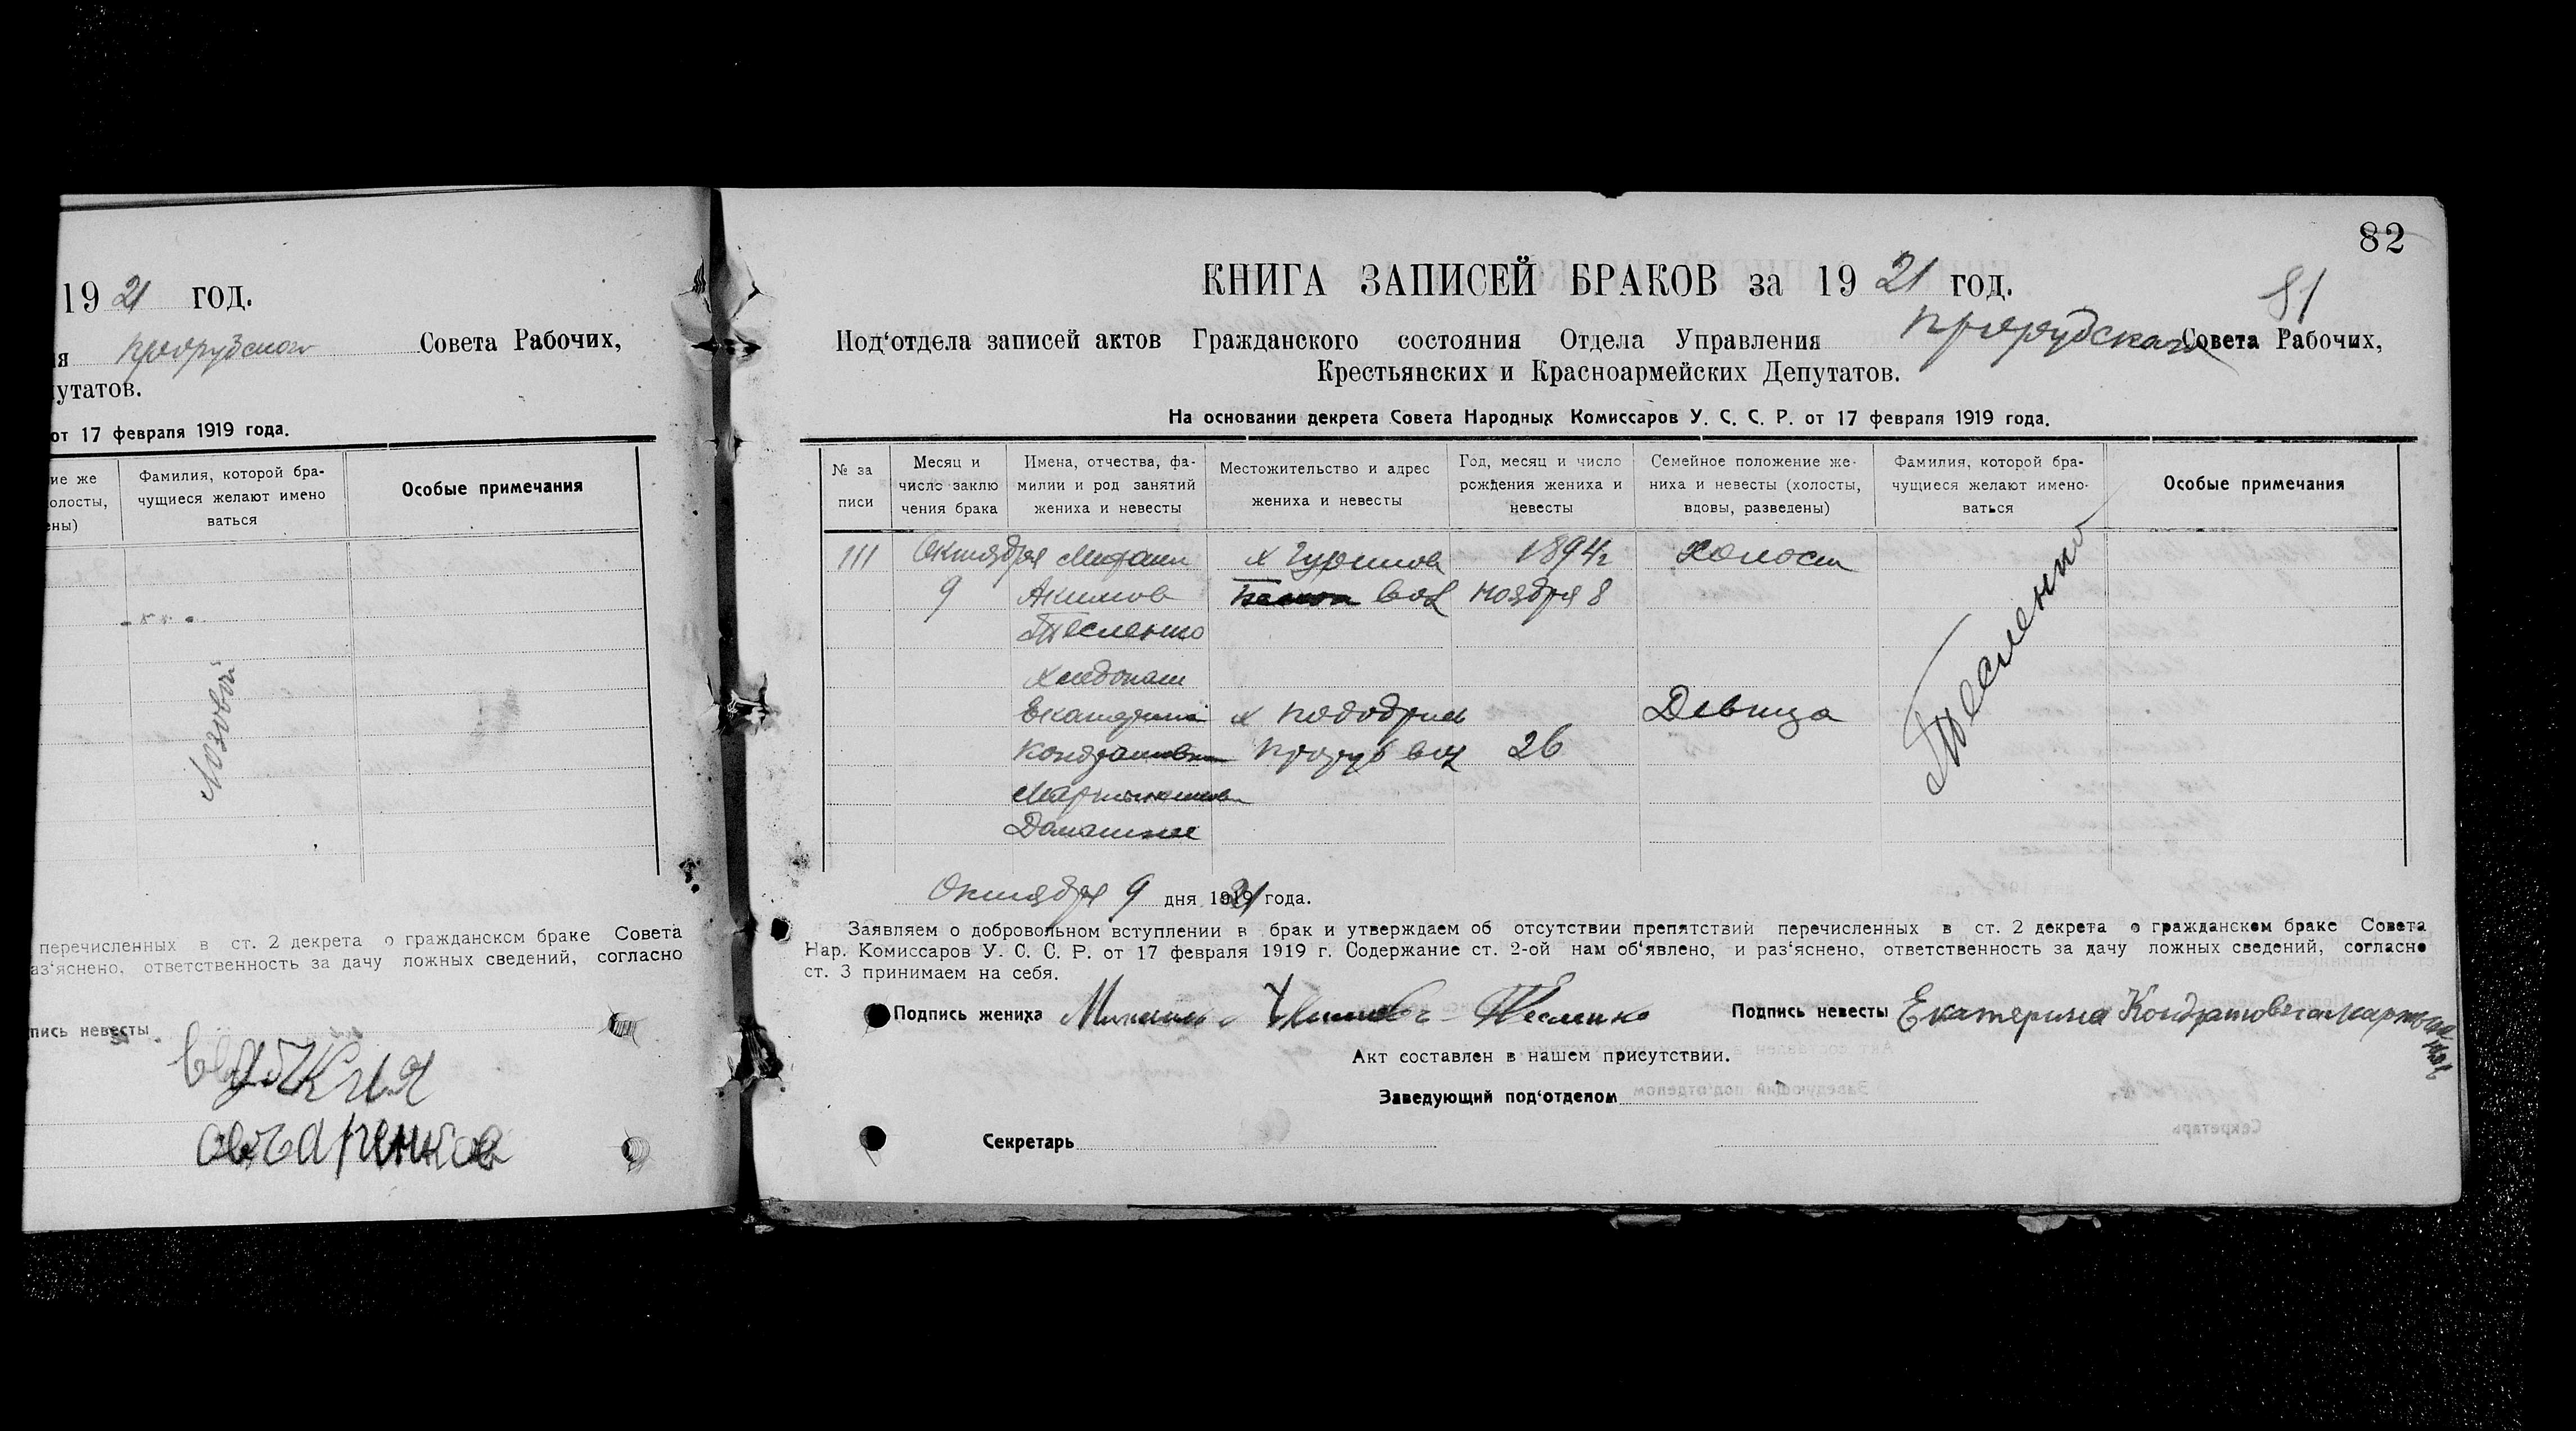 19 21 год.
Совета Рабочих,
путатов.
от 17 февраля 1919 года.
ие же
олосты,
ены)
Фамилия, которой бра-
чущиеся желают имено
ваться
Особые примечания
Лозовой
перечисленных в ст. 2 декрета о гражданском браке Совета
аз'яснено, ответственность за дачу ложных сведений, согласно
пись невесты
82
81
КНИГА ЗАПИСЕЙ БРАКОВ за 19 21 год.
Под'отдела записей актов Гражданского состояния Отдела Управления Прорубского Совета Рабочих,
Крестьянских и Красноармейских Депутатов.
На основании декрета Совета Народных Комиссаров У. С. С. Р. от 17 февраля 1919 года.
№ за
писи
Месяц и
число заклю
чения брака
Имена, отчества, фа-
милии и род занятий
жениха и невесты
Местожительство и адрес
жениха и невесты
Год, месяц и число
рождения жениха и
невесты
Семейное положение же-
ниха и невесты (холосты,
вдовы, разведены)
Фамилия, которой бра-
чущиеся желают имено-
ваться
Особые примечания
111 Октября х 1894 г Холост
9 Акимов вол Ноября 8
Тесленко
Хлебопаш
Екатерина х Девица
Кондратовна Проруб вол 26
Мартыненкова
Домашнее
Тесленко
Октября 9 дня 1921 года.
Заявляем о добровольном вступлении в брак и утверждаем об отсутствии препятствий перечисленных в ст. 2 декрета о гражданском браке Совета
Нар. Комиссаров У. С. С. Р. от 17 февраля 1919 г. Содержание ст. 2-ой нам об'явлено, и раз'яснено, ответственность за дачу ложных сведений, согласно
ст. 3 принимаем на себя.
Подпись жениха Тесленко Подпись невесты Екатерина Кондратовна
Акт составлен в нашем присутствии.
Заведующий под'отделом
Секретарь